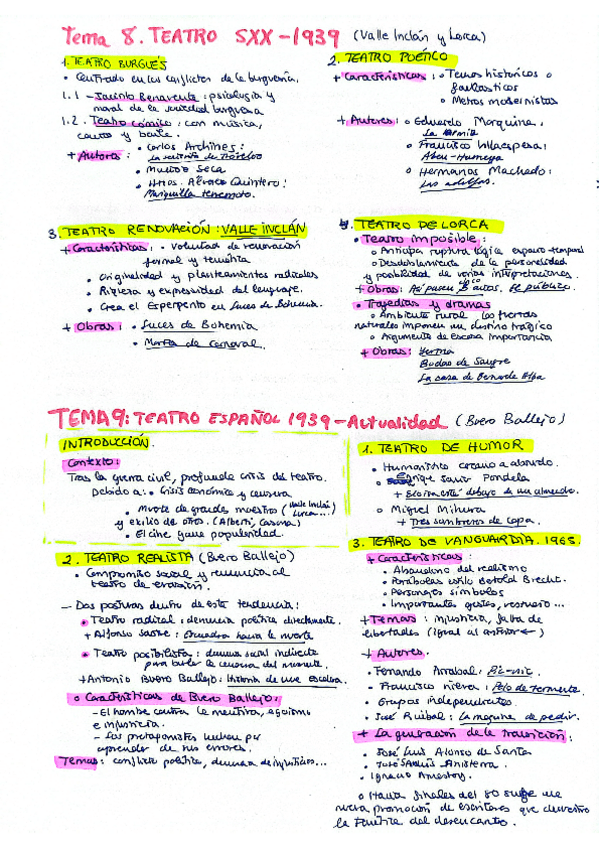 Tema 8. TEATRO SXX-1939 (Valle Inclán y Lorca)
1. TEATRO BURGUÉS
• Centrado en los conflictos de la burguesía.
1.1 - Jacinto Benavente: psicología y
moral de la sociedad burguesa
1.2. Teatro cómico: con música,
canto y baile.
+ Autores: • Carlos Arniches:
La señorita de Trévelez
• Muñoz Seca
• Hnos. Álvarez Quintero:
Mariquilla terremoto.
2. TEATRO POÉTICO
+ Características: • Temas históricos o
fantásticos
• Metros modernistas
+ Autores: • Eduardo Marquina:
• Francisco Villaespesa:
Aben-Humeya
• Hermanos Machado:
Las adelfas.
3. TEATRO RENOVACIÓN: VALLE INCLÁN
+ Características: • Voluntad de renovación
formal y temática
• Originalidad y planteamientos radicales
• Riqueza y expresividad del lenguaje.
• Crea el Esperpento en Luces de Bohemia.
+ Obras: • Luces de Bohemia
• Martes de Carnaval.
4. TEATRO DE LORCA
• Teatro imposible:
• Anticipa ruptura lógica espacio temporal
• Desdoblamiento de la personalidad
y posibilidad de varias interpretaciones.
+ Obras: Así pasen 5 años. El público.
• Tragedias y dramas
• Ambiente rural las fuerzas
naturales imponen un destino trágico
• Argumento de escasa importancia
+ Obras: Yerma
Bodas de Sangre
La casa de Bernarda Alba
TEMA 9: TEATRO ESPAÑOL 1939-Actualidad (Buero Ballejo)
INTRODUCCIÓN.
Contexto:
Tras la guerra civil, profunda crisis del teatro.
Debido a: • Crisis económica y censura
• Muerte de grandes maestros (Valle Inclán, Lorca...)
y exilio de otros. (Alberti, Casona)
• El cine gana popularidad.
1. TEATRO DE HUMOR
• Humorístico cercano a absurdo.
• Enrique Jardiel Poncela
+ Eloísa está debajo de un almendro.
• Miguel Mihura
+ Tres sombreros de copa.
2. TEATRO REALISTA (Buero Ballejo)
• Compromiso social y renuncia al
teatro de evasión.
- Dos posturas dentro de esta tendencia:
• Teatro radical: denuncia política directamente.
+ Alfonso Sastre: Escuadra hacia la muerte
• Teatro posibilista: denuncia social indirecta
para burlar la censura del momento.
+ Antonio Buero Ballejo: Historia de una escalera.
• Características de Buero Ballejo:
- El hombre contra la mentira, egoísmo
e injusticia.
- Los protagonistas luchan por
aprender de sus errores.
Temas: conflicto político, denuncia de injusticias...
3. TEATRO DE VANGUARDIA. 1965.
+ Características:
• Abandono del realismo
• Parábolas estilo Bertold Brecht.
• Personajes símbolos
• Importantes gestos, vestuario...
+ Temas: injusticia, falta de
libertades (igual al anterior ←)
+ Autores.
- Fernando Arrabal: Pic-nic.
- Francisco Nieva: Pelo de tormenta.
• Grupos independientes.
• José Ruibal: La máquina de pedir.
+ La generación de la transición:
• José Luis Alonso de Santos
• Ignacio Amestoy
• Hasta finales del 80 surge una
nueva promoción de escritores que demuestra
la del desencanto.